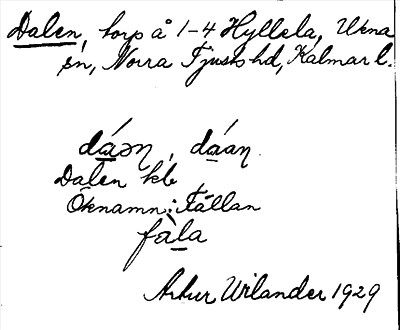 Dalen, torp å 1-4 Hyllela, Ukna
sn, Norra Tjusts hd, Kalmar l.
dá̲əη, dá̲aη
Dalen kb
Öknamn: Fållan
fà̲la
Artur Wilander 1929